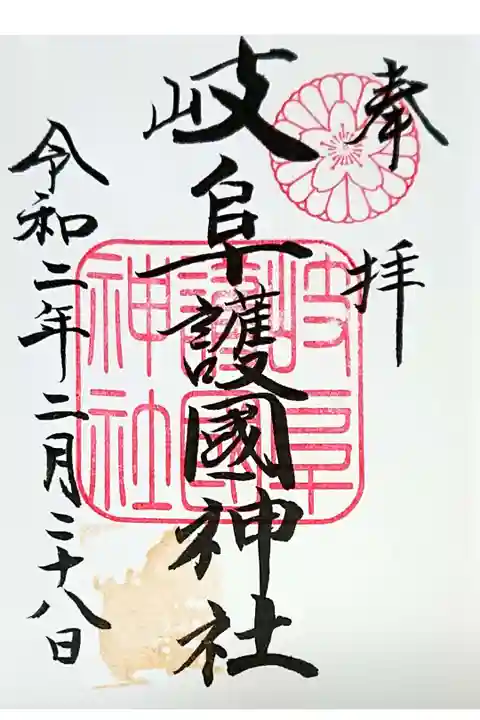 奉拝
岐阜護國神社
岐阜護國神社
令和二年二月二十八日